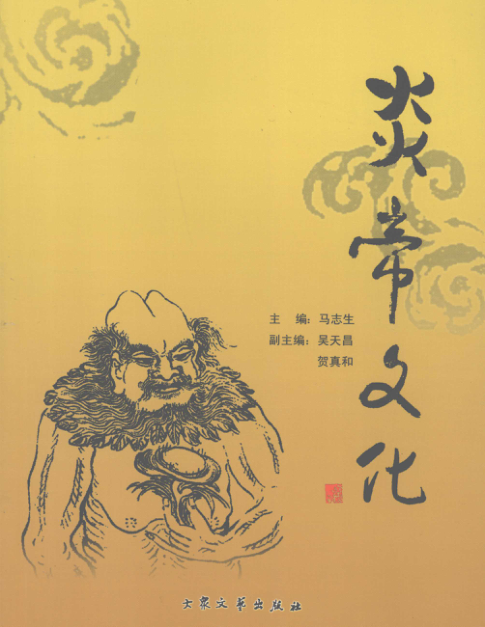 炎帝文化
主 编：马志生
副主编：吴天昌
贺真和
大众文艺出版社